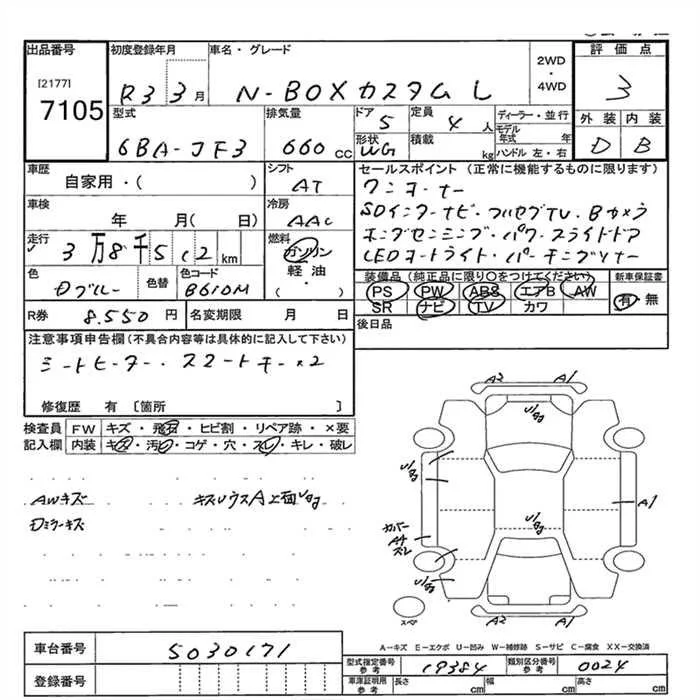 出品番号
[2177]
7105
初度登録年月
R3 3月
車名・グレード
N-BOXカスタム L
2WD
・
4WD
評価点
3
型式
6BA-JF3
排気量
660 cc
ドア
5
定員
4 人
形状
WG
積載
kg
ディーラー・並行
モデル年式 年
ハンドル 左・右
外装 内装
D B
車歴
自家用・( )
シフト
AT
車検
年 月( 日)
冷房
AAC
走行
3万8千512km
燃料
ガソリン
軽油
( ・ )
色
Dブルー
色替
色コード
B610M
R券
8.550円
名変期限 月 日
セールスポイント(正常に機能するものに限ります)
ワンオーナー
SDインターナビ・フルセグTV・Bカメラ
ホンダセンシング・パワースライドドア
LEDオートライト・パーキングソナー
装備品(純正品に限り○をつけてください)
PS PW ABS エアB AW
SR ナビ TV カワ
新車保証書
有・無
後日品
注意事項申告欄(不具合内容等は具体的に記入して下さい)
シートヒーター・スマートキー×2
修復歴 有〔箇所 〕
検査員記入欄
FW キズ・飛石・ヒビ割・リペア跡・×要
内装 キズ・汚れ・コゲ・穴・スレ・キレ・破レ
AWキズ
Dミラーキズ
A2 A1
U/g
A1
カバー
A4
スレ
A2 A1
スペア
A-キズ E-エクボ U-凹み W-補修跡 S-サビ C-腐食 XX-交換済
車台番号
5030171
登録番号
型式指定番号
参考
19384
類別区分番号
参考
0024
車庫証明用
参考
長さ cm 幅 cm 高さ cm